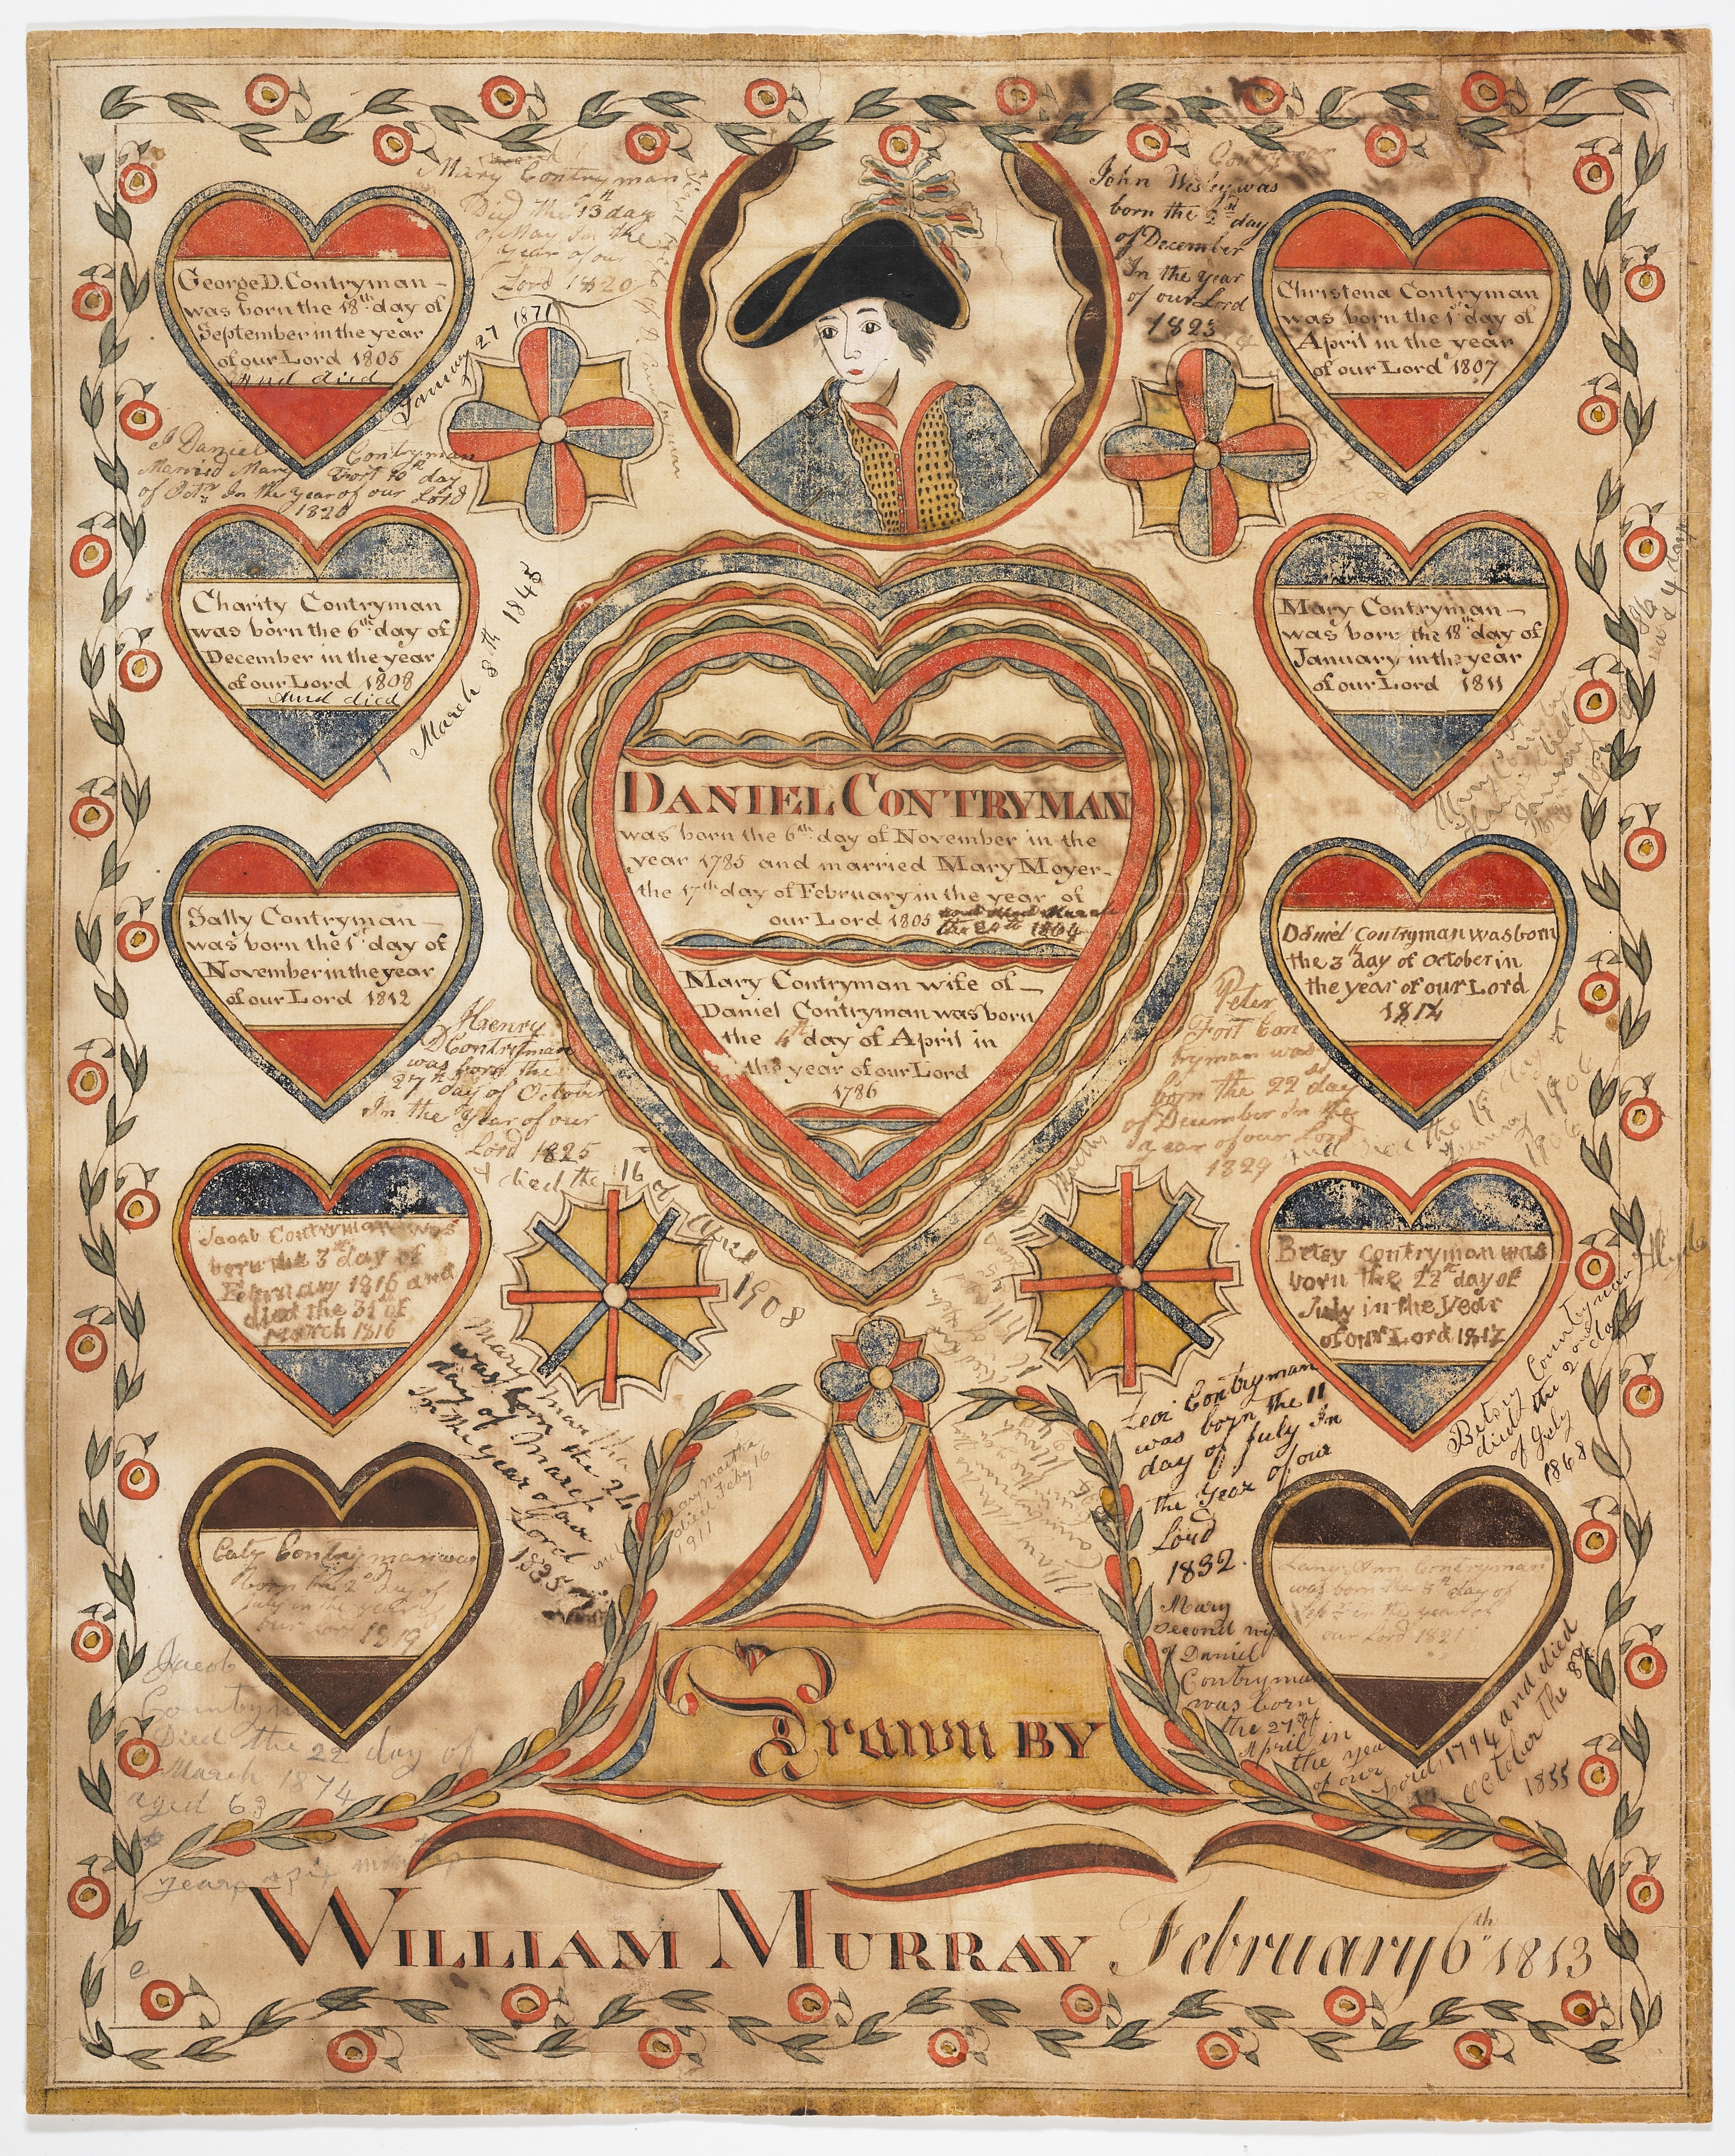 Mary Contryman
Died the 13th day
of May In the
Year of our
Lord 1820
John Wesley was
born the
day
of December
In the year
of our Lord
1823
George D. Contryman –
was born the 18th day of
September in the year
of our Lord 1805
And died
January 27 1871
Christena Contryman
was born the 1st day of
April in the year
of our Lord 1807
I Daniel Contryman
Married Mary Fort 10th day
of Octr In the year of our Lord
1820
Charity Contryman
was born the 6th day of
December in the year
of our Lord 1808
And died
March 8th 1845
Mary Contryman –
was born the 18th day of
January in the year
of our Lord 1811
DANIEL CONTRYMAN
was born the 6th day of November in the
year 1785 and married Mary Moyer –
the 17th day of February in the year of
our Lord 1805 and died March
the 1864
Mary Contryman wife of –
Daniel Contryman was born
the 4th day of April in
the year of our Lord
1786
Sally Contryman –
was born the 1st day of
November in the year
of our Lord 1812
Daniel Contryman was born
the 3th day of October in
the year of our Lord
1814
Haenry
D Contryman
was born the
27th day of October
In the Year of our
Lord 1825
& died the 16 of
April 1908
Peter
Fort Con
tryman was
born the 22st day
of December in the
year of our Lord
1829
and died the 19
1906
Jacob Contryman was
born the 3th day of
February 1816 and
died the 31 of
March 1816
Betsy Contryman was
born the 22th day of
July in the Year
of our Lord 1817
Betsey Countryman
died the 2 day
of July
1868
Mary Martha
was born the 24
day of March
In the Year of our
Lord
1835
Levi Contryman
was born the 11
day of July In
the Year of our
Lord
1832.
Mary matha
died Feby 16
1911
Caty Contryman was
born the 2 day of
July in the year of
our Lord 1819
Lany Ann Contryman
was born the 8th day of
in the year of
our Lord 1821
Mary
second wife
of Daniel
Contryman
was born
the 27th of
April in
the year
of our Lord 1794 and died
October the 8th
1855
Jacob
Countryman
Died the 22 day of
March 1874
aged 63
years & six months
Drawn BY
WILLIAM MURRAY February 6th 1813